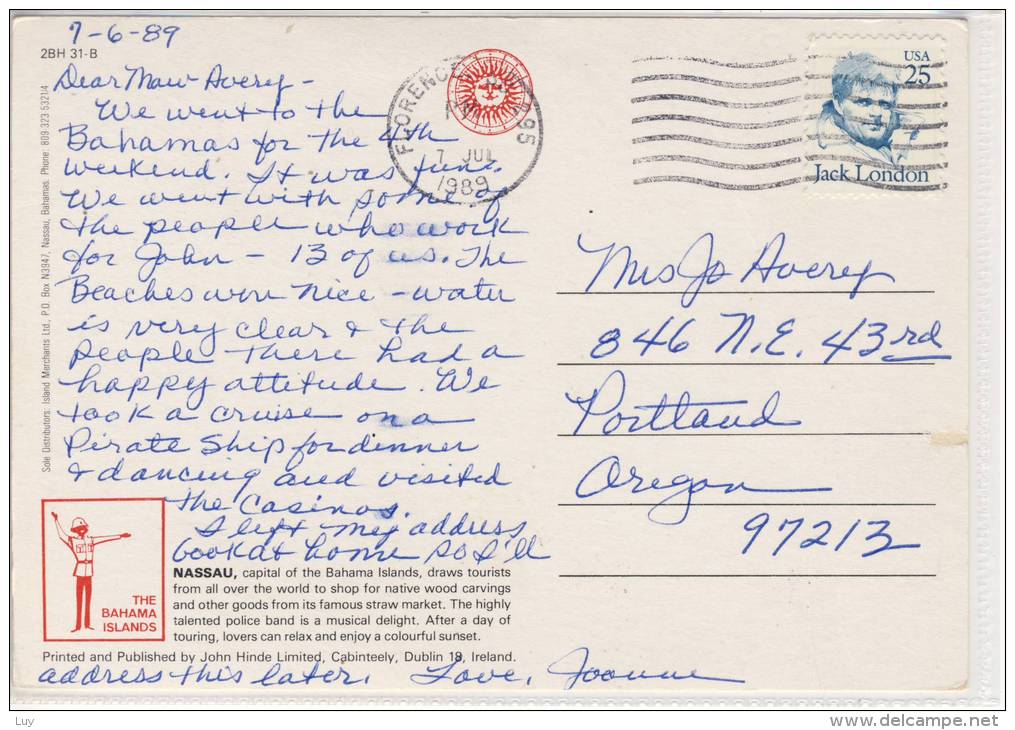 7-6-89
2BH 31-B
Dear Maw Avery -
We went to the
Bahamas for the 4th
weekend. It was fun.
We went with some of
the people who work
for John - 13 of us. The
Beaches were nice - water
is very clear & the
people there had a
happy attitude. We
took a cruise on a
Pirate Ship for dinner
& dancing and visited
the Casinos.
I left my address
book at home so I'll
address this later. Love, Joanne
Sole Distributors: Island Merchants Ltd., P.O. Box N3947, Nassau, Bahamas. Phone: 809 323 53214
THE
BAHAMA
ISLANDS
NASSAU, capital of the Bahama Islands, draws tourists
from all over the world to shop for native wood carvings
and other goods from its famous straw market. The highly
talented police band is a musical delight. After a day of
touring, lovers can relax and enjoy a colourful sunset.
Printed and Published by John Hinde Limited, Cabinteely, Dublin 18, Ireland.
FLORENCE 
PM
7 JUL
1989
USA
25
Jack London
Mrs Jo Avery
846 N.E. 43rd
Portland
Oregon
97213
Luy
delcampe.net